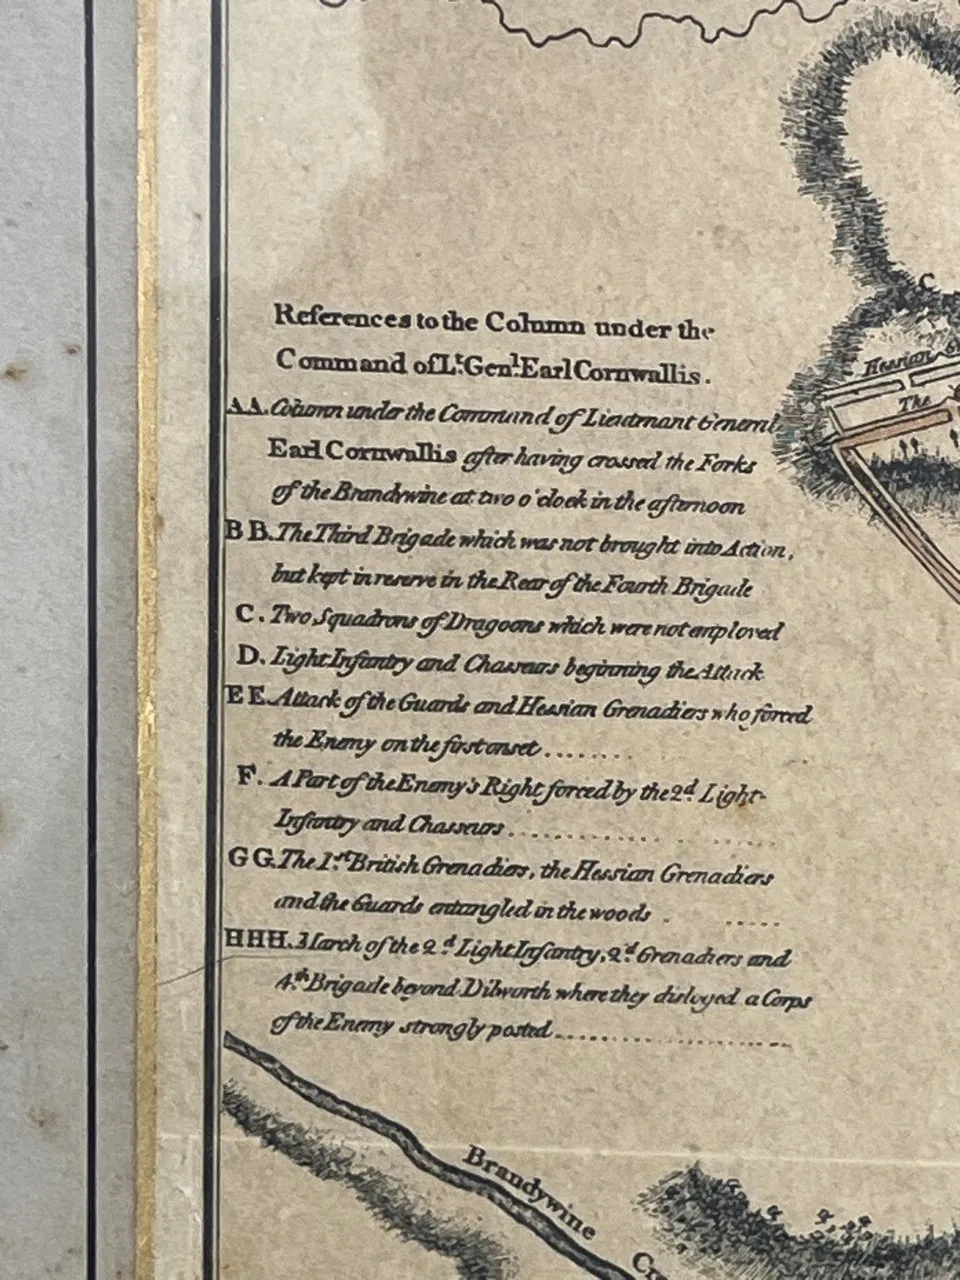 C
Hessian
The
References to the Column under the
Command of Lt. Genl. Earl Cornwallis.
AA. Column under the Command of Lieutenant General
Earl Cornwallis after having crossed the Forks
of the Brandywine at two o'clock in the afternoon
BB. The Third Brigade which was not brought into Action,
but kept in reserve in the Rear of the Fourth Brigade
C. Two Squadrons of Dragoons which were not employed
D. Light Infantry and Chasseurs beginning the Attack
EE. Attack of the Guards and Hessian Grenadiers who forced
the Enemy on the first onset........
F. A Part of the Enemy's Right forced by the 2d. Light-
Infantry and Chasseurs..................
GG. The 1st. British Grenadiers, the Hessian Grenadiers
and the Guards entangled in the woods . ......
HHH. March of the 2d. Light Infantry, 2d. Grenadiers and
4th. Brigade beyond Dilworth where they disloged a Corps
of the Enemy strongly posted........................
Brandywine